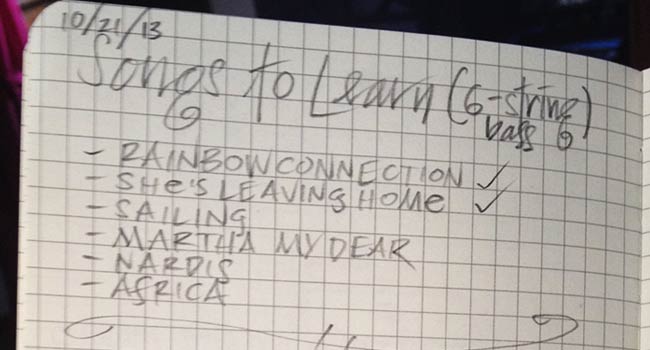 10/21/13
Songs to Learn (6-string
bass)
- RAINBOW CONNECTION ✓
- SHE'S LEAVING HOME ✓
- SAILING
- MARTHA MY DEAR
- NARDIS
- AFRICA